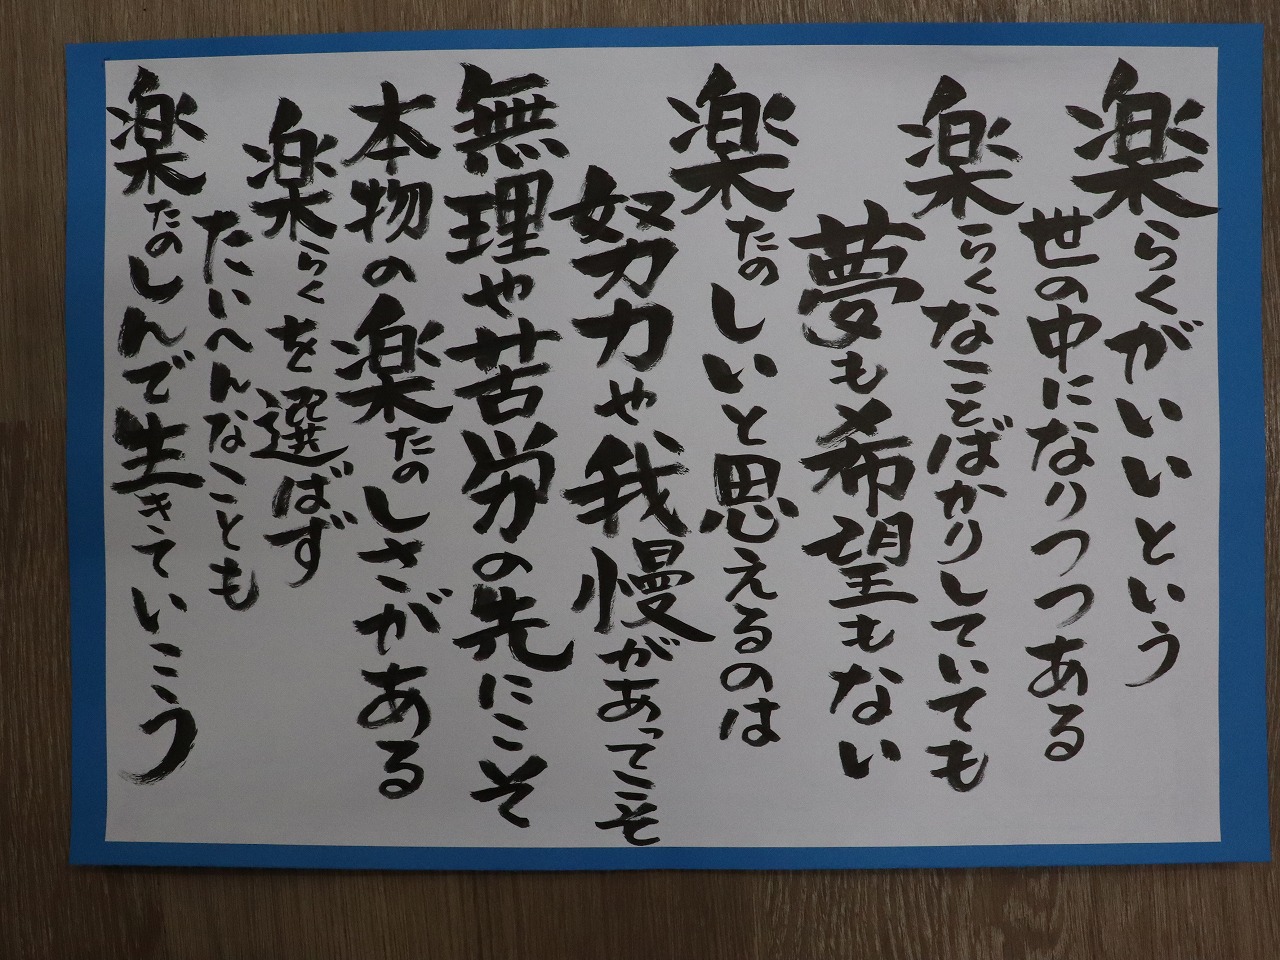 楽らくがいいという
世の中になりつつある
楽らくなことばかりしていても
夢も希望もない
楽たのしいと思えるのは
努力や我慢があってこそ
無理や苦労の先にこそ
本物の楽たのしさがある
楽らくを選ばず
たいへんなことも
楽たのしんで生きていこう